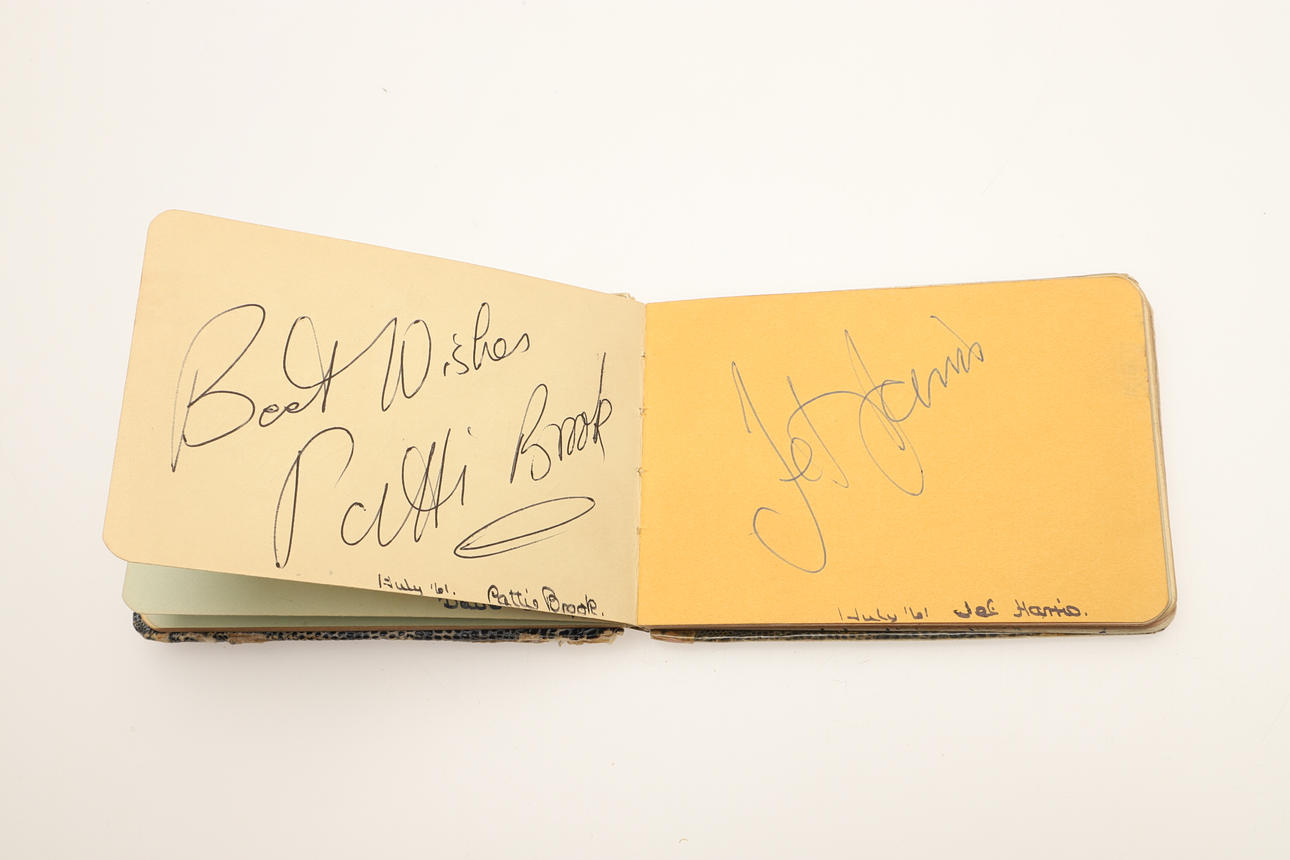 Best Wishes
Patti Brook
July '61. Pattie Brook.
Jet Harris
July '61 Jet Harris.